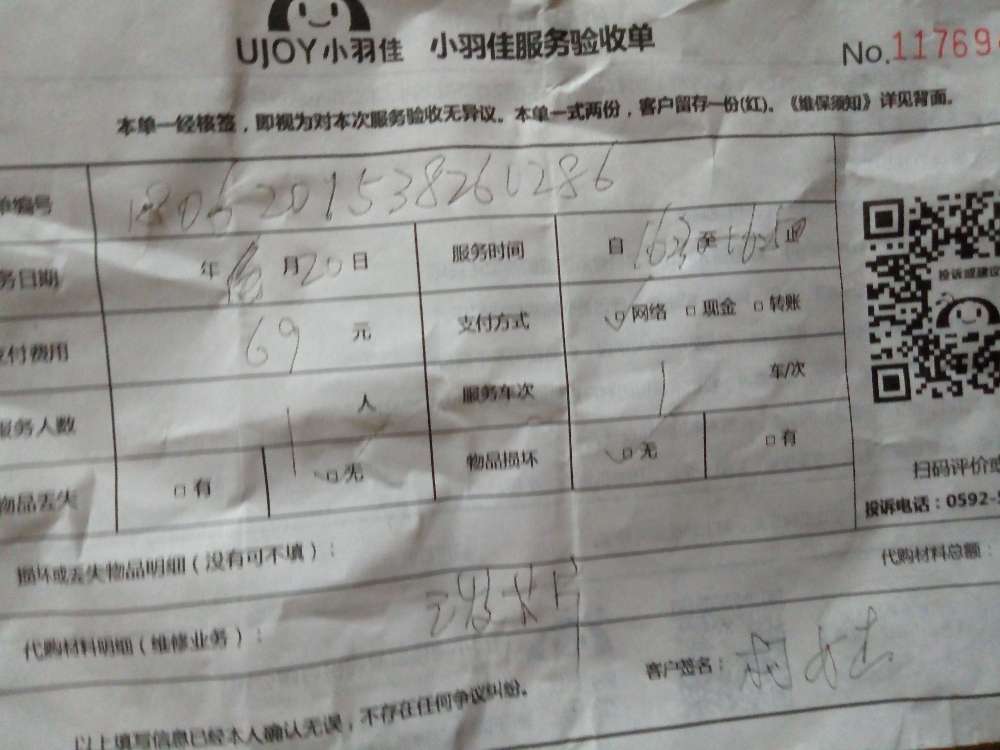 UJOY小羽佳 小羽佳服务验收单 No.11769
本单一经核签，即视为对本次服务验收无异议。本单一式两份，客户留存一份(红)。《维保须知》详见背面。
单编号 1806201538260286
务日期 年 月20日 服务时间 自 至 止
投诉或建议
支付费用 69 元 支付方式 □网络 □现金 □转账
服务人数 1 人 服务车次 1 车/次
物品丢失 □有 □无 物品损坏 □无 □有
扫码评价或
投诉电话：0592-
损坏或丢失物品明细（没有可不填）：
代购材料总额：
代购材料明细（维修业务）：
客户签名：
以上填写信息已经本人确认无误，不存在任何争议纠纷。